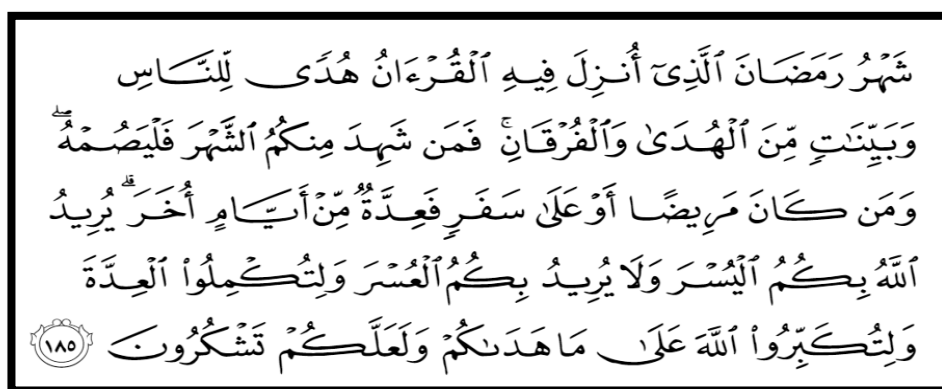 شَهْرُ رَمَضَانَ ٱلَّذِىٓ أُنزِلَ فِيهِ ٱلْقُرْءَانُ هُدًى لِّلنَّاسِ
وَبَيِّنَٰتٍ مِّنَ ٱلْهُدَىٰ وَٱلْفُرْقَانِ ۚ فَمَن شَهِدَ مِنكُمُ ٱلشَّهْرَ فَلْيَصُمْهُ ۖ
وَمَن كَانَ مَرِيضًا أَوْ عَلَىٰ سَفَرٍ فَعِدَّةٌ مِّنْ أَيَّامٍ أُخَرَ ۗ يُرِيدُ
ٱللَّهُ بِكُمُ ٱلْيُسْرَ وَلَا يُرِيدُ بِكُمُ ٱلْعُسْرَ وَلِتُكْمِلُوا۟ ٱلْعِدَّةَ
وَلِتُكَبِّرُوا۟ ٱللَّهَ عَلَىٰ مَا هَدَىٰكُمْ وَلَعَلَّكُمْ تَشْكُرُونَ ١٨٥